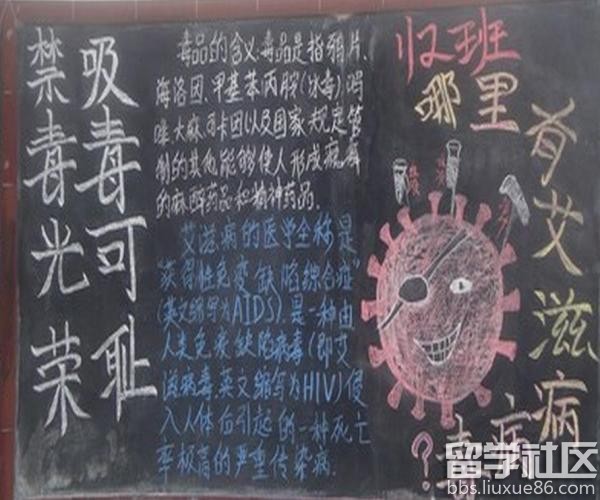 吸毒可耻
禁毒光荣
毒品的含义:毒品是指鸦片、
海洛因、甲基苯丙胺(冰毒)、吗
啡、大麻、可卡因以及国家规定管
制的其他能够使人形成瘾癖
的麻醉药品和精神药品。
艾滋病的医学全称是
"获得性免疫缺陷综合症"
(英文缩写为AIDS),是一种由
人类免疫缺陷病毒(即艾
滋病毒,英文缩写为HIV)侵
入人体后引起的一种死亡
率极高的严重传染病.
班
哪里
有艾滋病
病毒?
留学社区
bbs.liuxue86.com